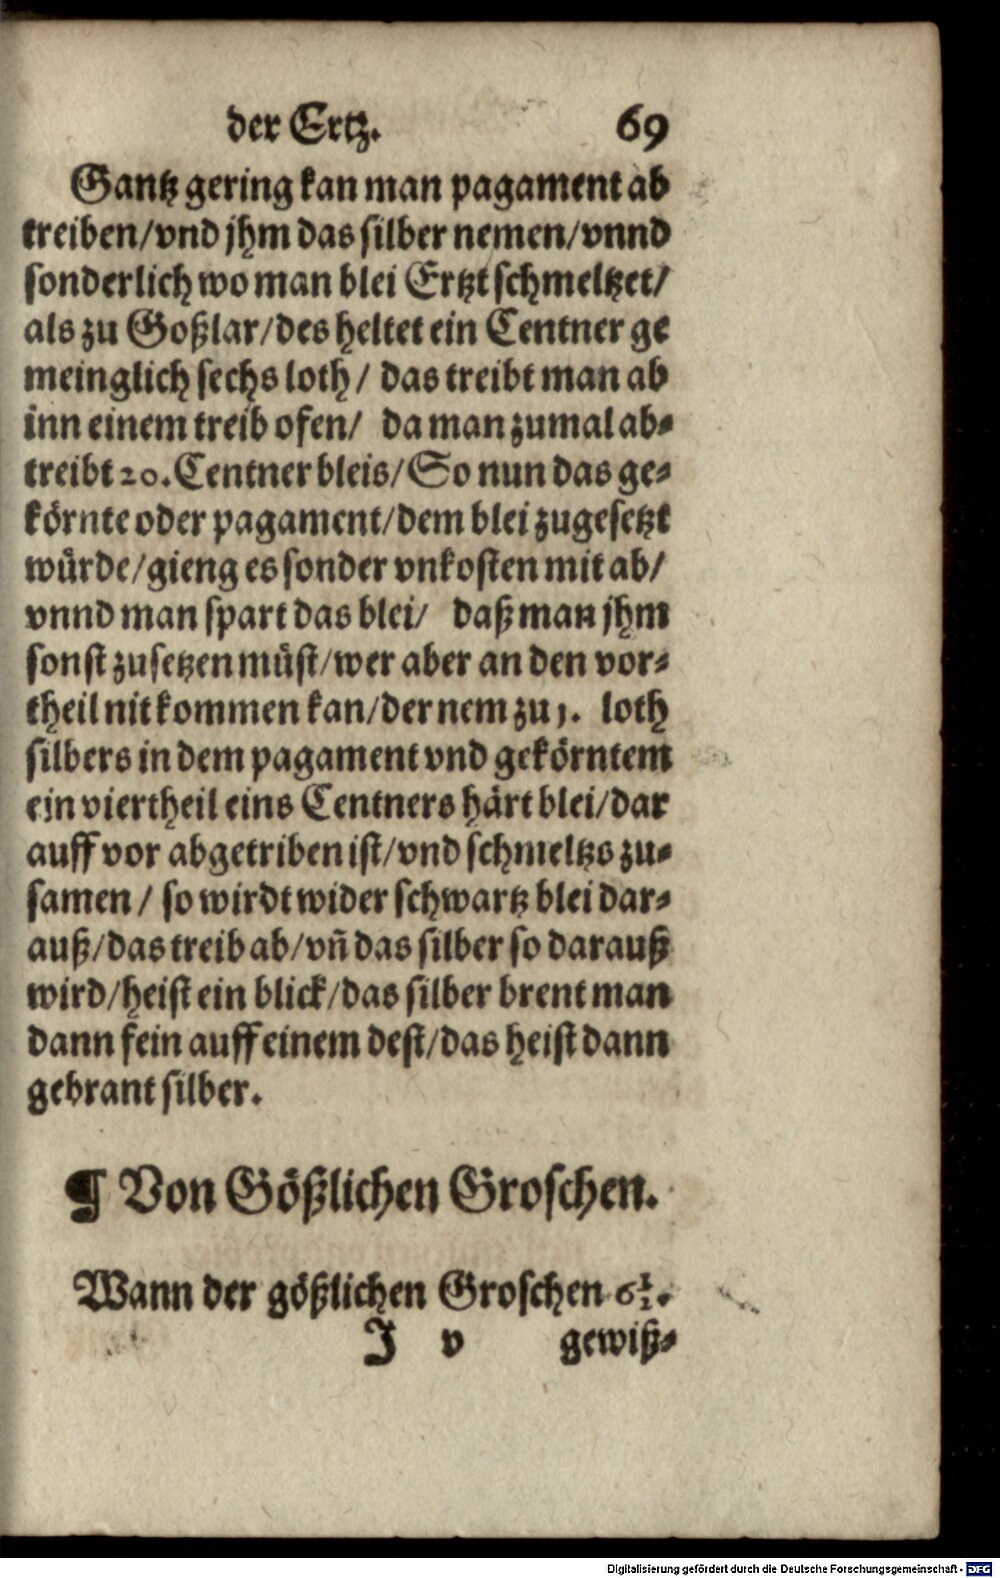 der Ertz. 69
Gantz gering kan man pagament ab
treiben/vnd jhm das silber nemen/vnnd
sonderlich wo man blei Ertzt schmeltzet/
als zu Goßlar/des heltet ein Centner ge
meinglich sechs loth/ das treibt man ab
inn einem treib ofen/ da man zumal ab⸗
treibt 20. Centner bleis/So nun das ge⸗
körnte oder pagament/dem blei zugesetzt
würde/gieng es sonder vnkosten mit ab/
vnnd man spart das blei/ daß man jhm
sonst zusetzen müst/wer aber an den vor⸗
theil nit kommen kan/der nem zu 1. loth
silbers in dem pagament vnd gekörntem
ein viertheil eins Centners härt blei/dar
auff vor abgetriben ist/vnd schmeltzs zu⸗
samen/ so wirdt wider schwartz blei dar⸗
auß/das treib ab/vn̄ das silber so darauß
wird/heist ein blick/das silber brent man
dann fein auff einem dest/das heist dann
gebrant silber.
¶ Von Gößlichen Groschen.
Wann der gößlichen Groschen 6½.
J v gewiß⸗
Digitalisierung gefördert durch die Deutsche Forschungsgemeinschaft - DFG